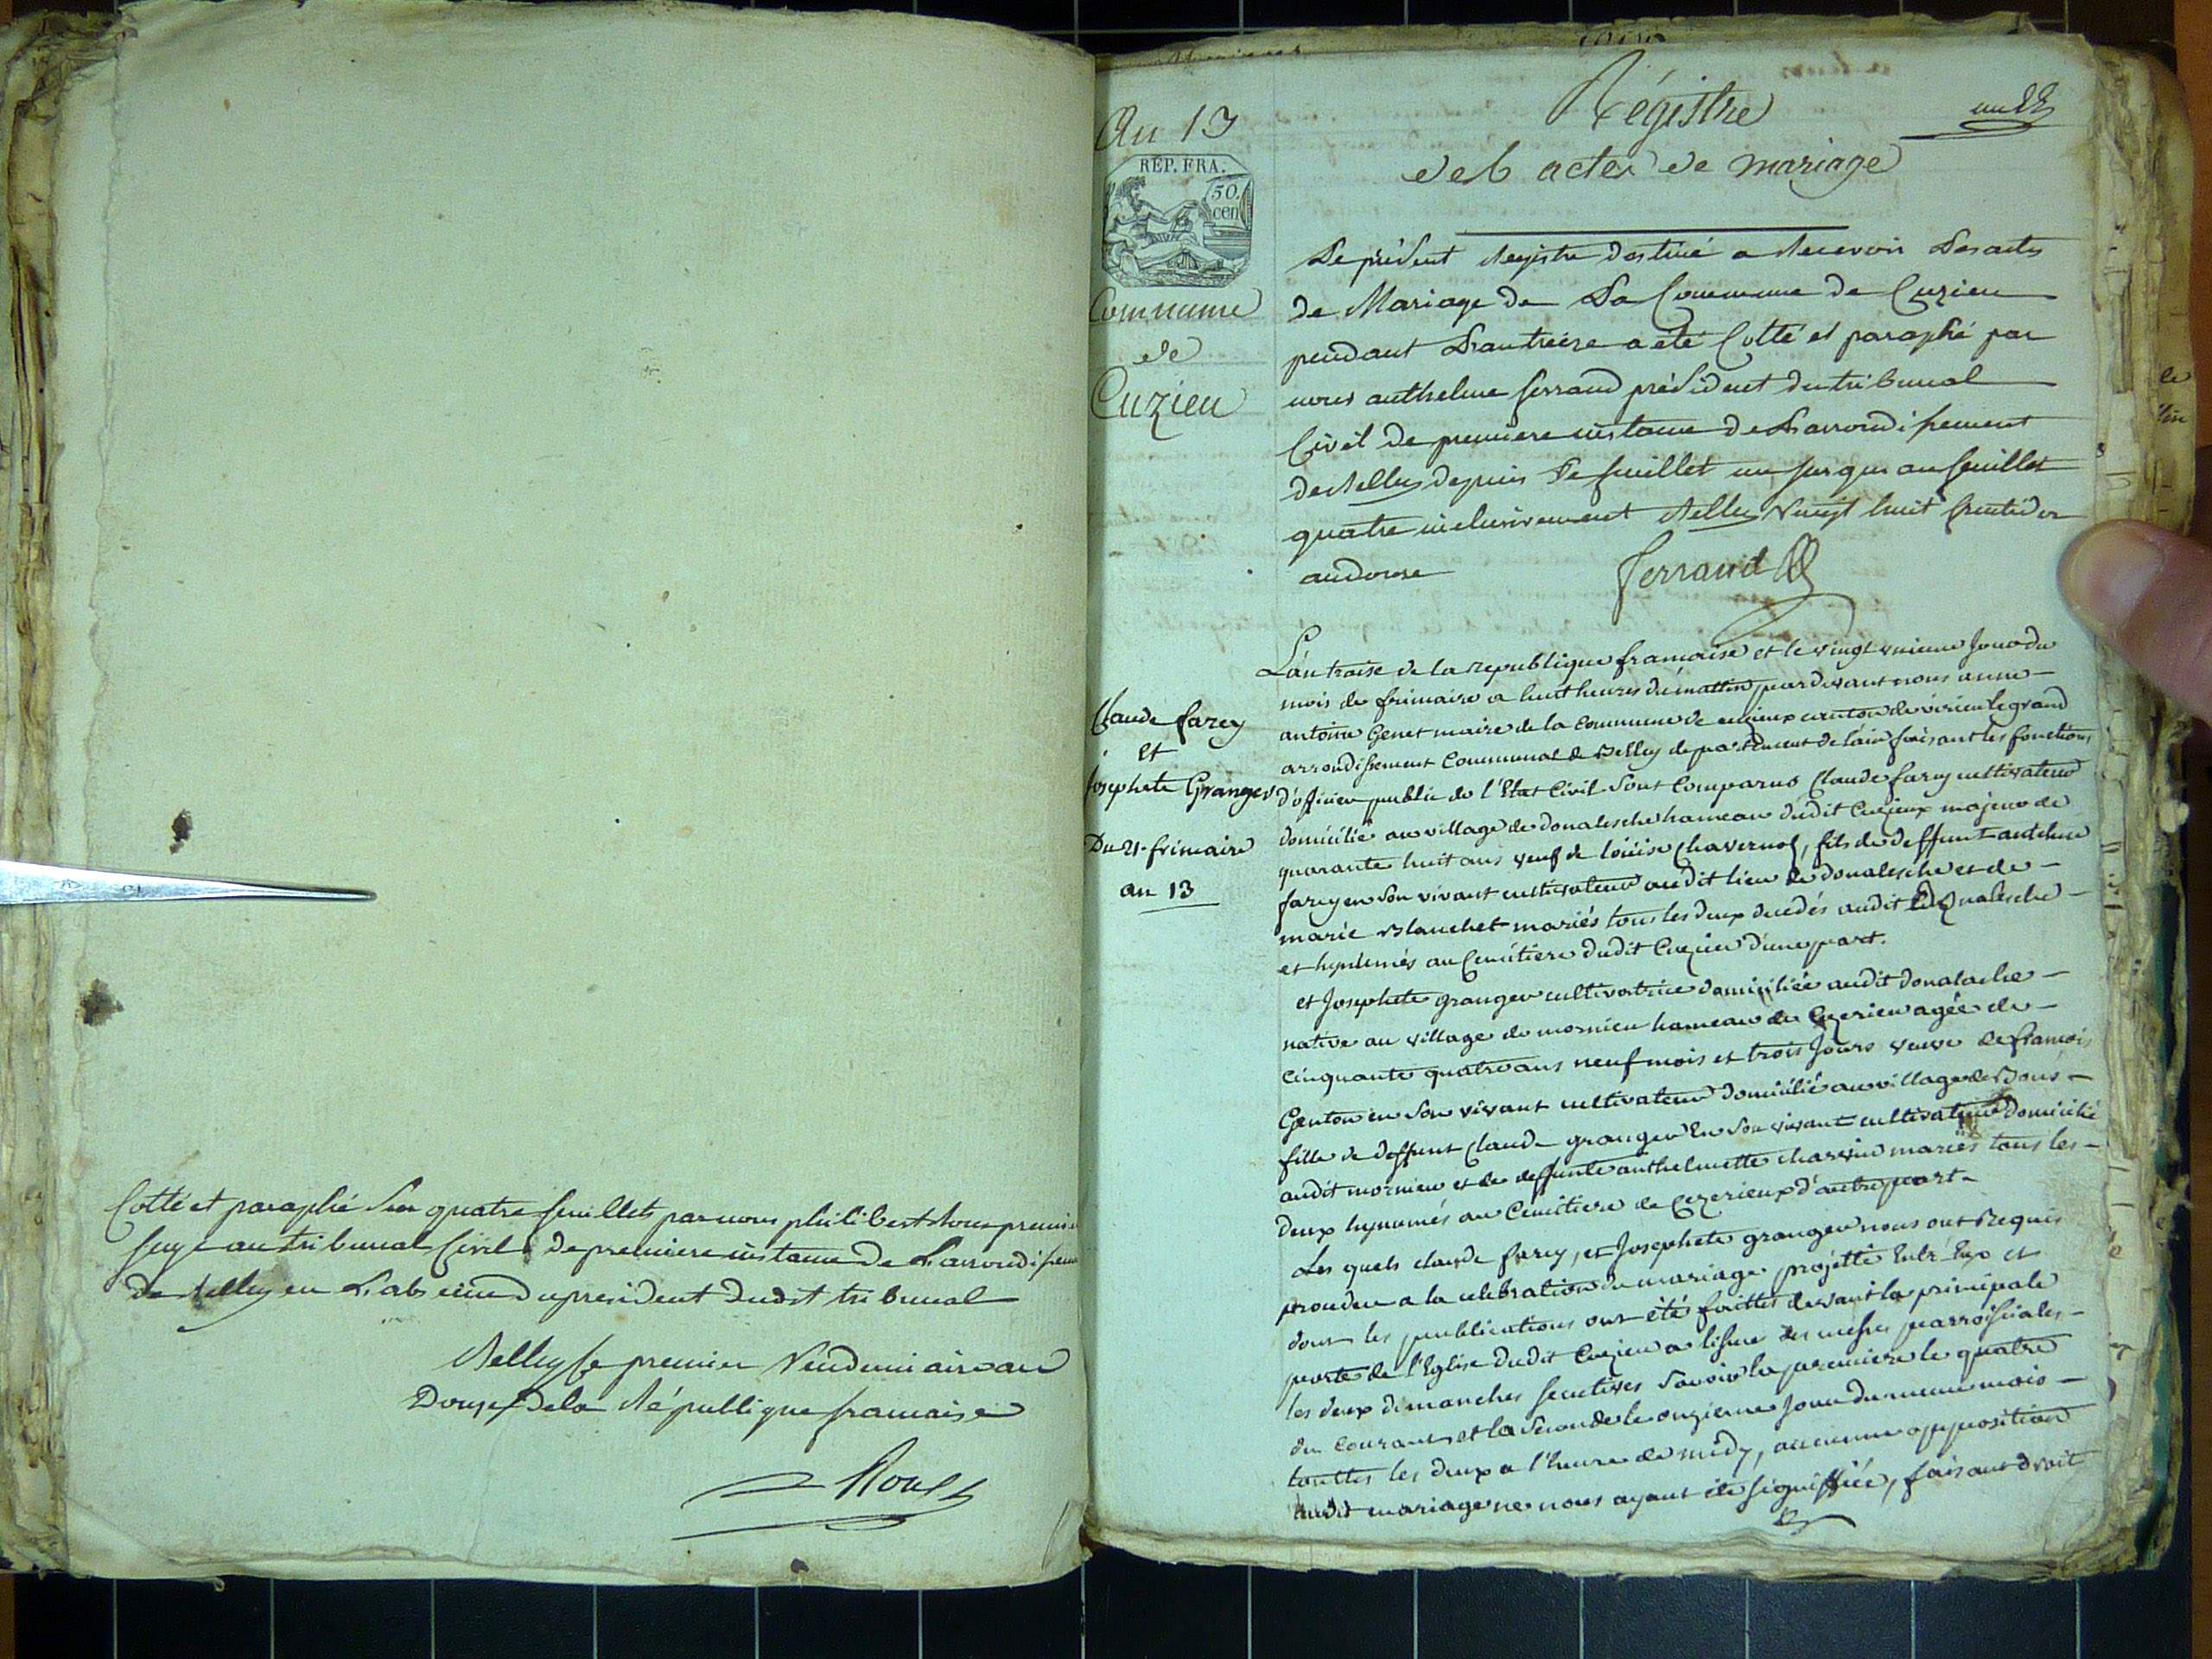 Cotté et paraphé sur quatre feuillets par nous philibert Roux premier
juge au tribunal Civil de premiere instance de L'arrondissem
de Belley en L'absence du president dudit tribunal
Belley le premier Vendemiaire an
Douze de la République francaise
Roux
An 13
REP. FRA.
50. cen
Commune
de
Cuzieu
Claude farcy
et
Josephete Granger
Du 21 frimaire
an 13
Régistre
un
des actes de mariage
Le présent Registre destiné a Recevoir Les actes
de Mariage de La Commune de Cuzieu
pendant L'an treize a été Cotté et paraphé par
nous anthelme ferrand président du tribunal
Civil de premiere instance de L'arrondissement
de Belley depuis Le feuillet un jusques au feuillet
quatre inclusivement Belley Vingt huit fructidor
an douze
ferrand
L'an traise de la republique francaise et le vingt unieme Jour du
mois de frimaire a huit heures du mattin, pardevant nous anne
antoine Genet maire de la commune de cuzieux canton de virieu le grand
arrondissement Communal de Belley departement de l'ain faisant les fonctions
d'officier public de l'Etat Civil Sont Comparus Claude farcy cultivateur
domicilié au village de donalesche hameau dudit Cuzieux majeur de
quarante huit ans veuf de loüise Chavernol, fils de deffunt antelme
farcy en Son vivant cultivateur audit lieu de donalesche et de
marie Blanchet mariés tous les deux decedés audit donalesche
et hynhumés au Cemitiere dudit Cuzieu d'une part.
et Josephete granger cultivatrice domiciliée audit donalache
native au village de mornieu hameau de Ceyzerieu agée de
cinquante quatre ans neuf mois et trois Jours veuve de francois
Genton en Son vivant cultivateur domicilié au village de Bons
fille de deffunt Claude granger En Son vivant cultivateur domicilié
audit mornieu et de deffunte anthelmette charvin mariés tous les
deux hynumés au Cemitiere de Cezerieux d'autre part
Les quels claude farcy, et Josephete granger nous ont Requis
proceder a la celebration du mariage projetté Entr'Eux et
dont les publications ont été faittes devant la principale
porte de l'Eglise dudit Cuzieu a l'issue des messes parroissiales
les deux dimanches secutives Savoir la premiere le quatre
du courant et la seconde le onzieme Jour du meme mois
touttes les deux a l'heure de midy, aucunne opposition
audit mariage ne nous ayant été signiffiée, faisant droit